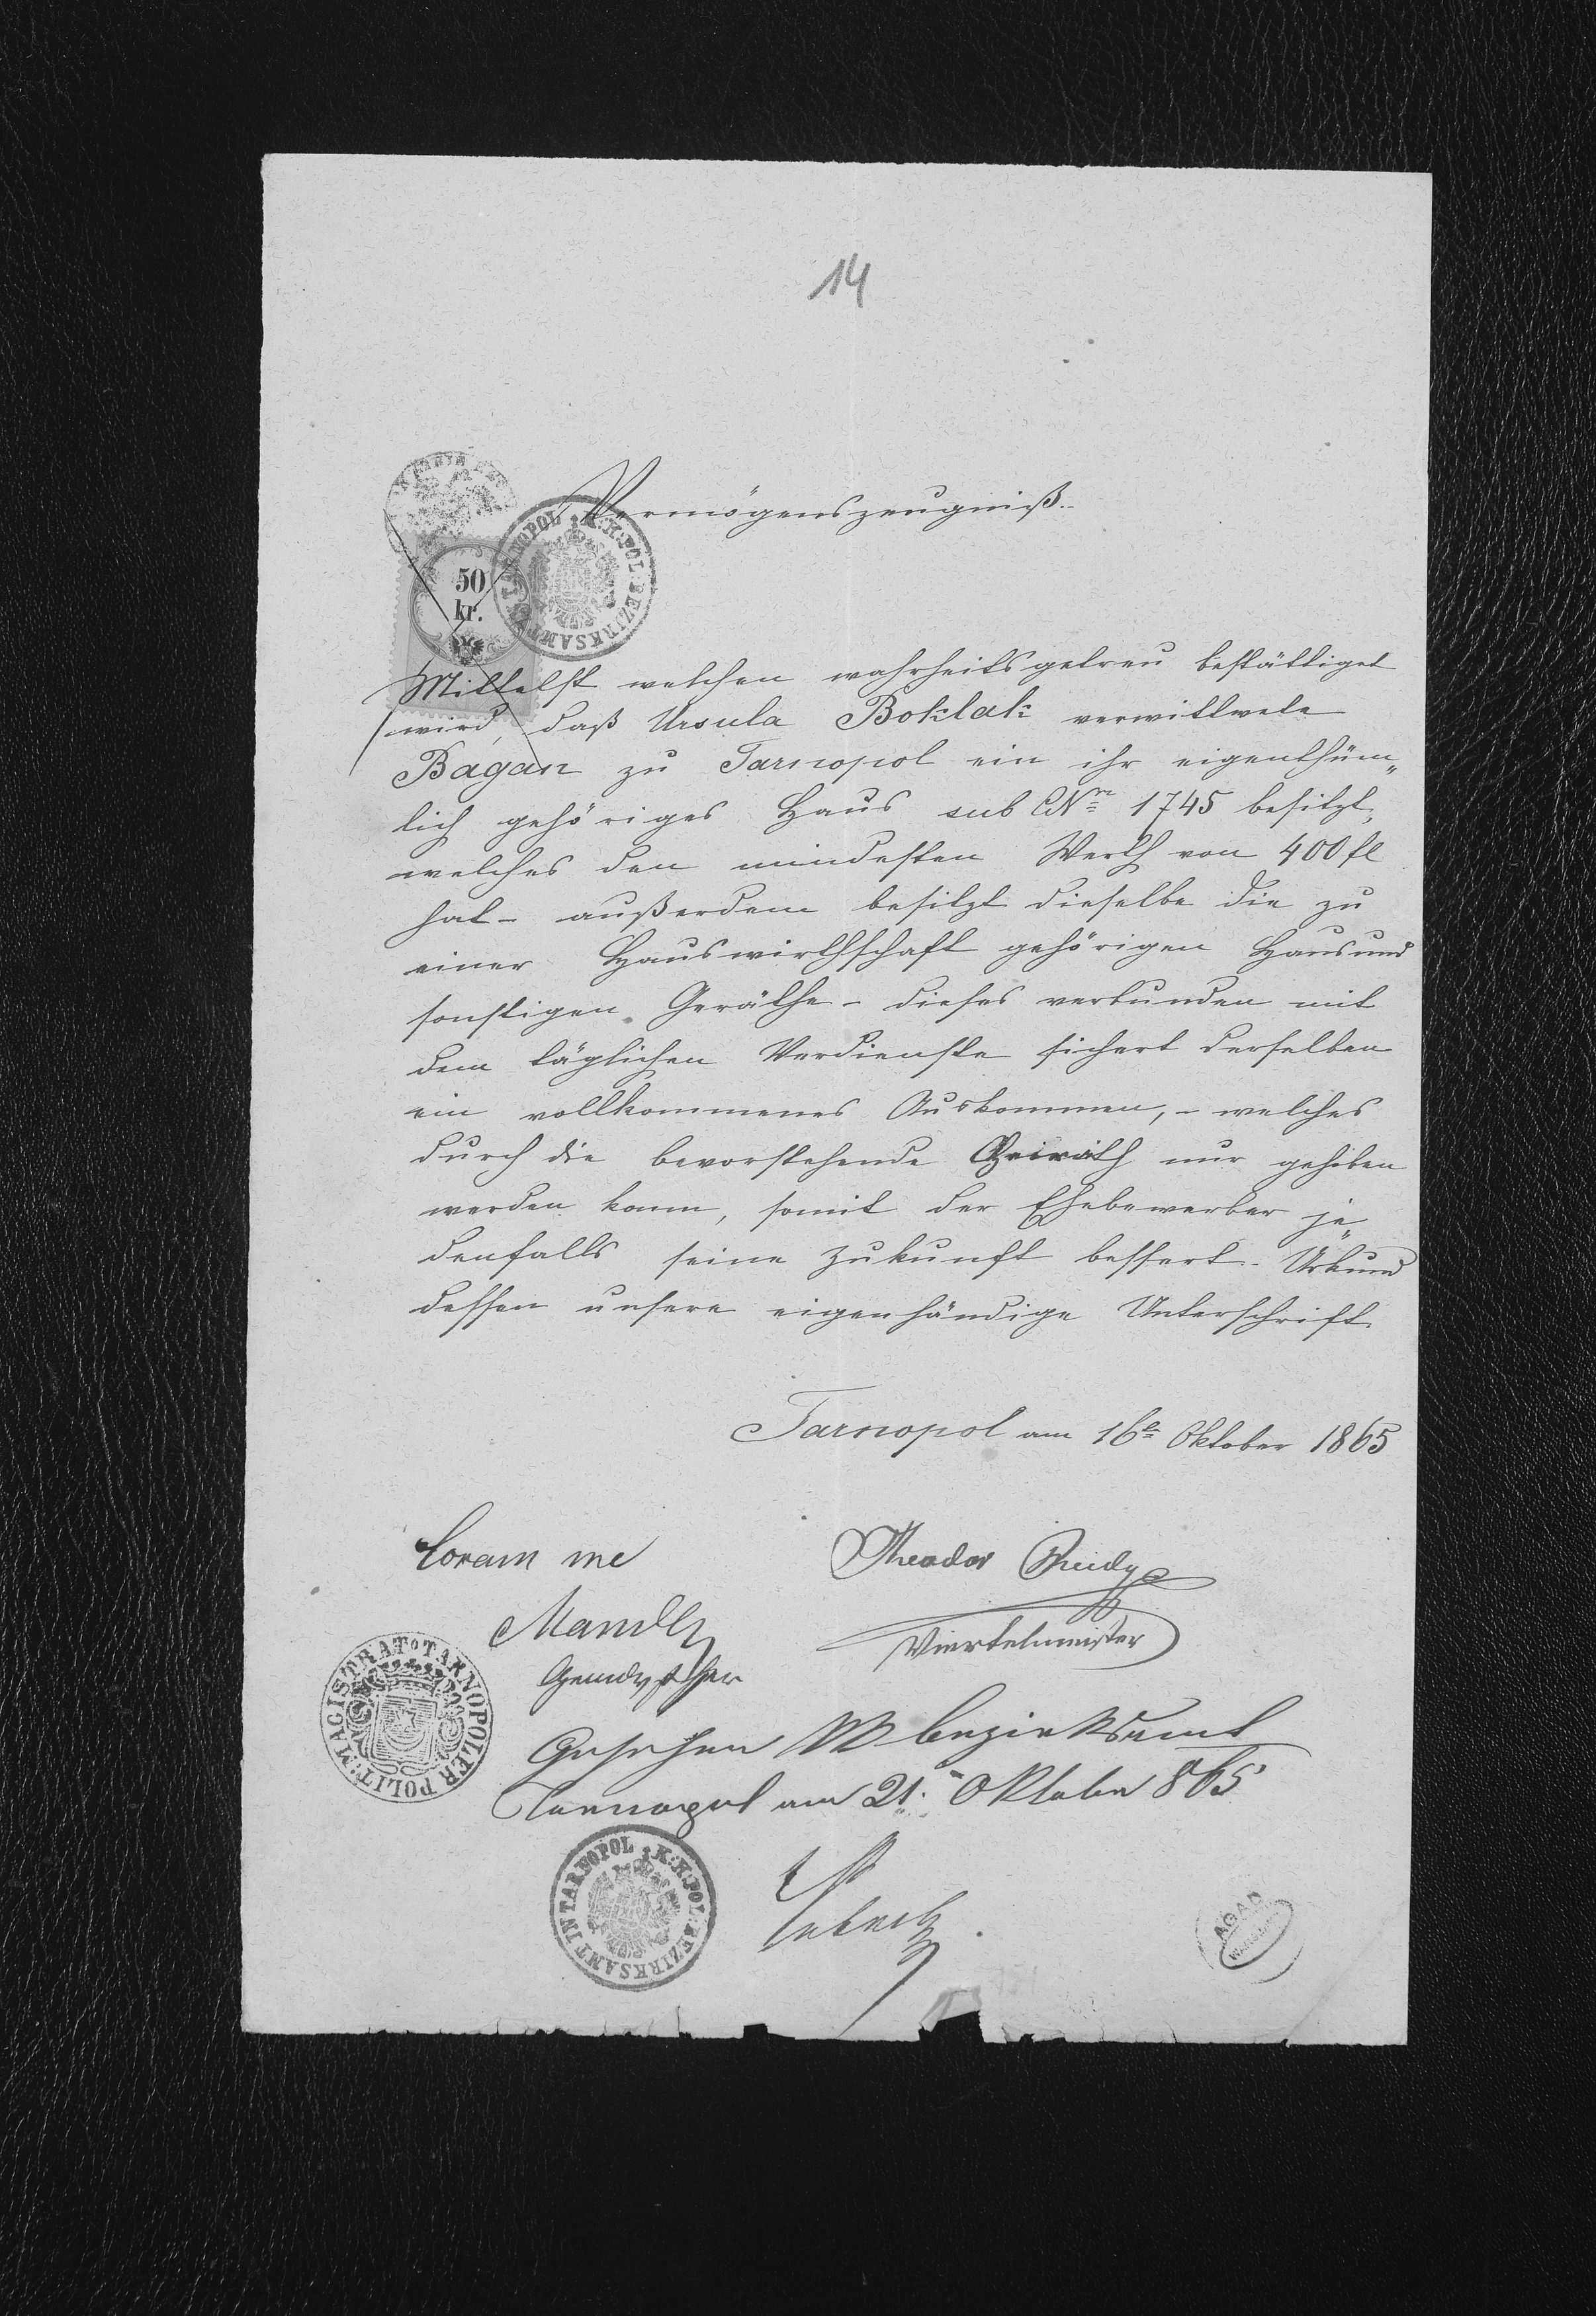 14
Vermögenszeugniß.
50
kr.
K: K: POL: BEZIRKSAMT IN TARNOPOL
Mittelst welchen wahrheitsgetreu bestättiget
wird, daß Ursula Boklak verwittwete
Bagan zu Tarnopol ein ihr eigenthüm„
lich gehöriges Haus sub CNro 1745 besitzt,
welches den mindesten Werth von 400 fl
hat – außerdem besitzt dieselbe die zu
einer Hauswirthschaft gehörigen Haus und
sonstigen Geräthe – dieses verbunden mit
dem täglichen Verdienste sichert derselben
ein vollkommenes Auskommen, – welches
durch die bevorstehende Heirath nur gehoben
werden kann, somit der Ehebewerber je„
denfalls seine Zukunft bessert. Urkund
dessen unsere eigenhändige Unterschrift
Tarnopol am 16t Oktober 1865
Coram me
Theodor
Viertelmeister
TARNOPOLER POLIT: MAGISTRAT
Gesehen KK Bezirksamt
Tarnopol am 21. Oktober 865
K: K: POL: BEZIRKSAMT IN TARNOPOL
AGAD